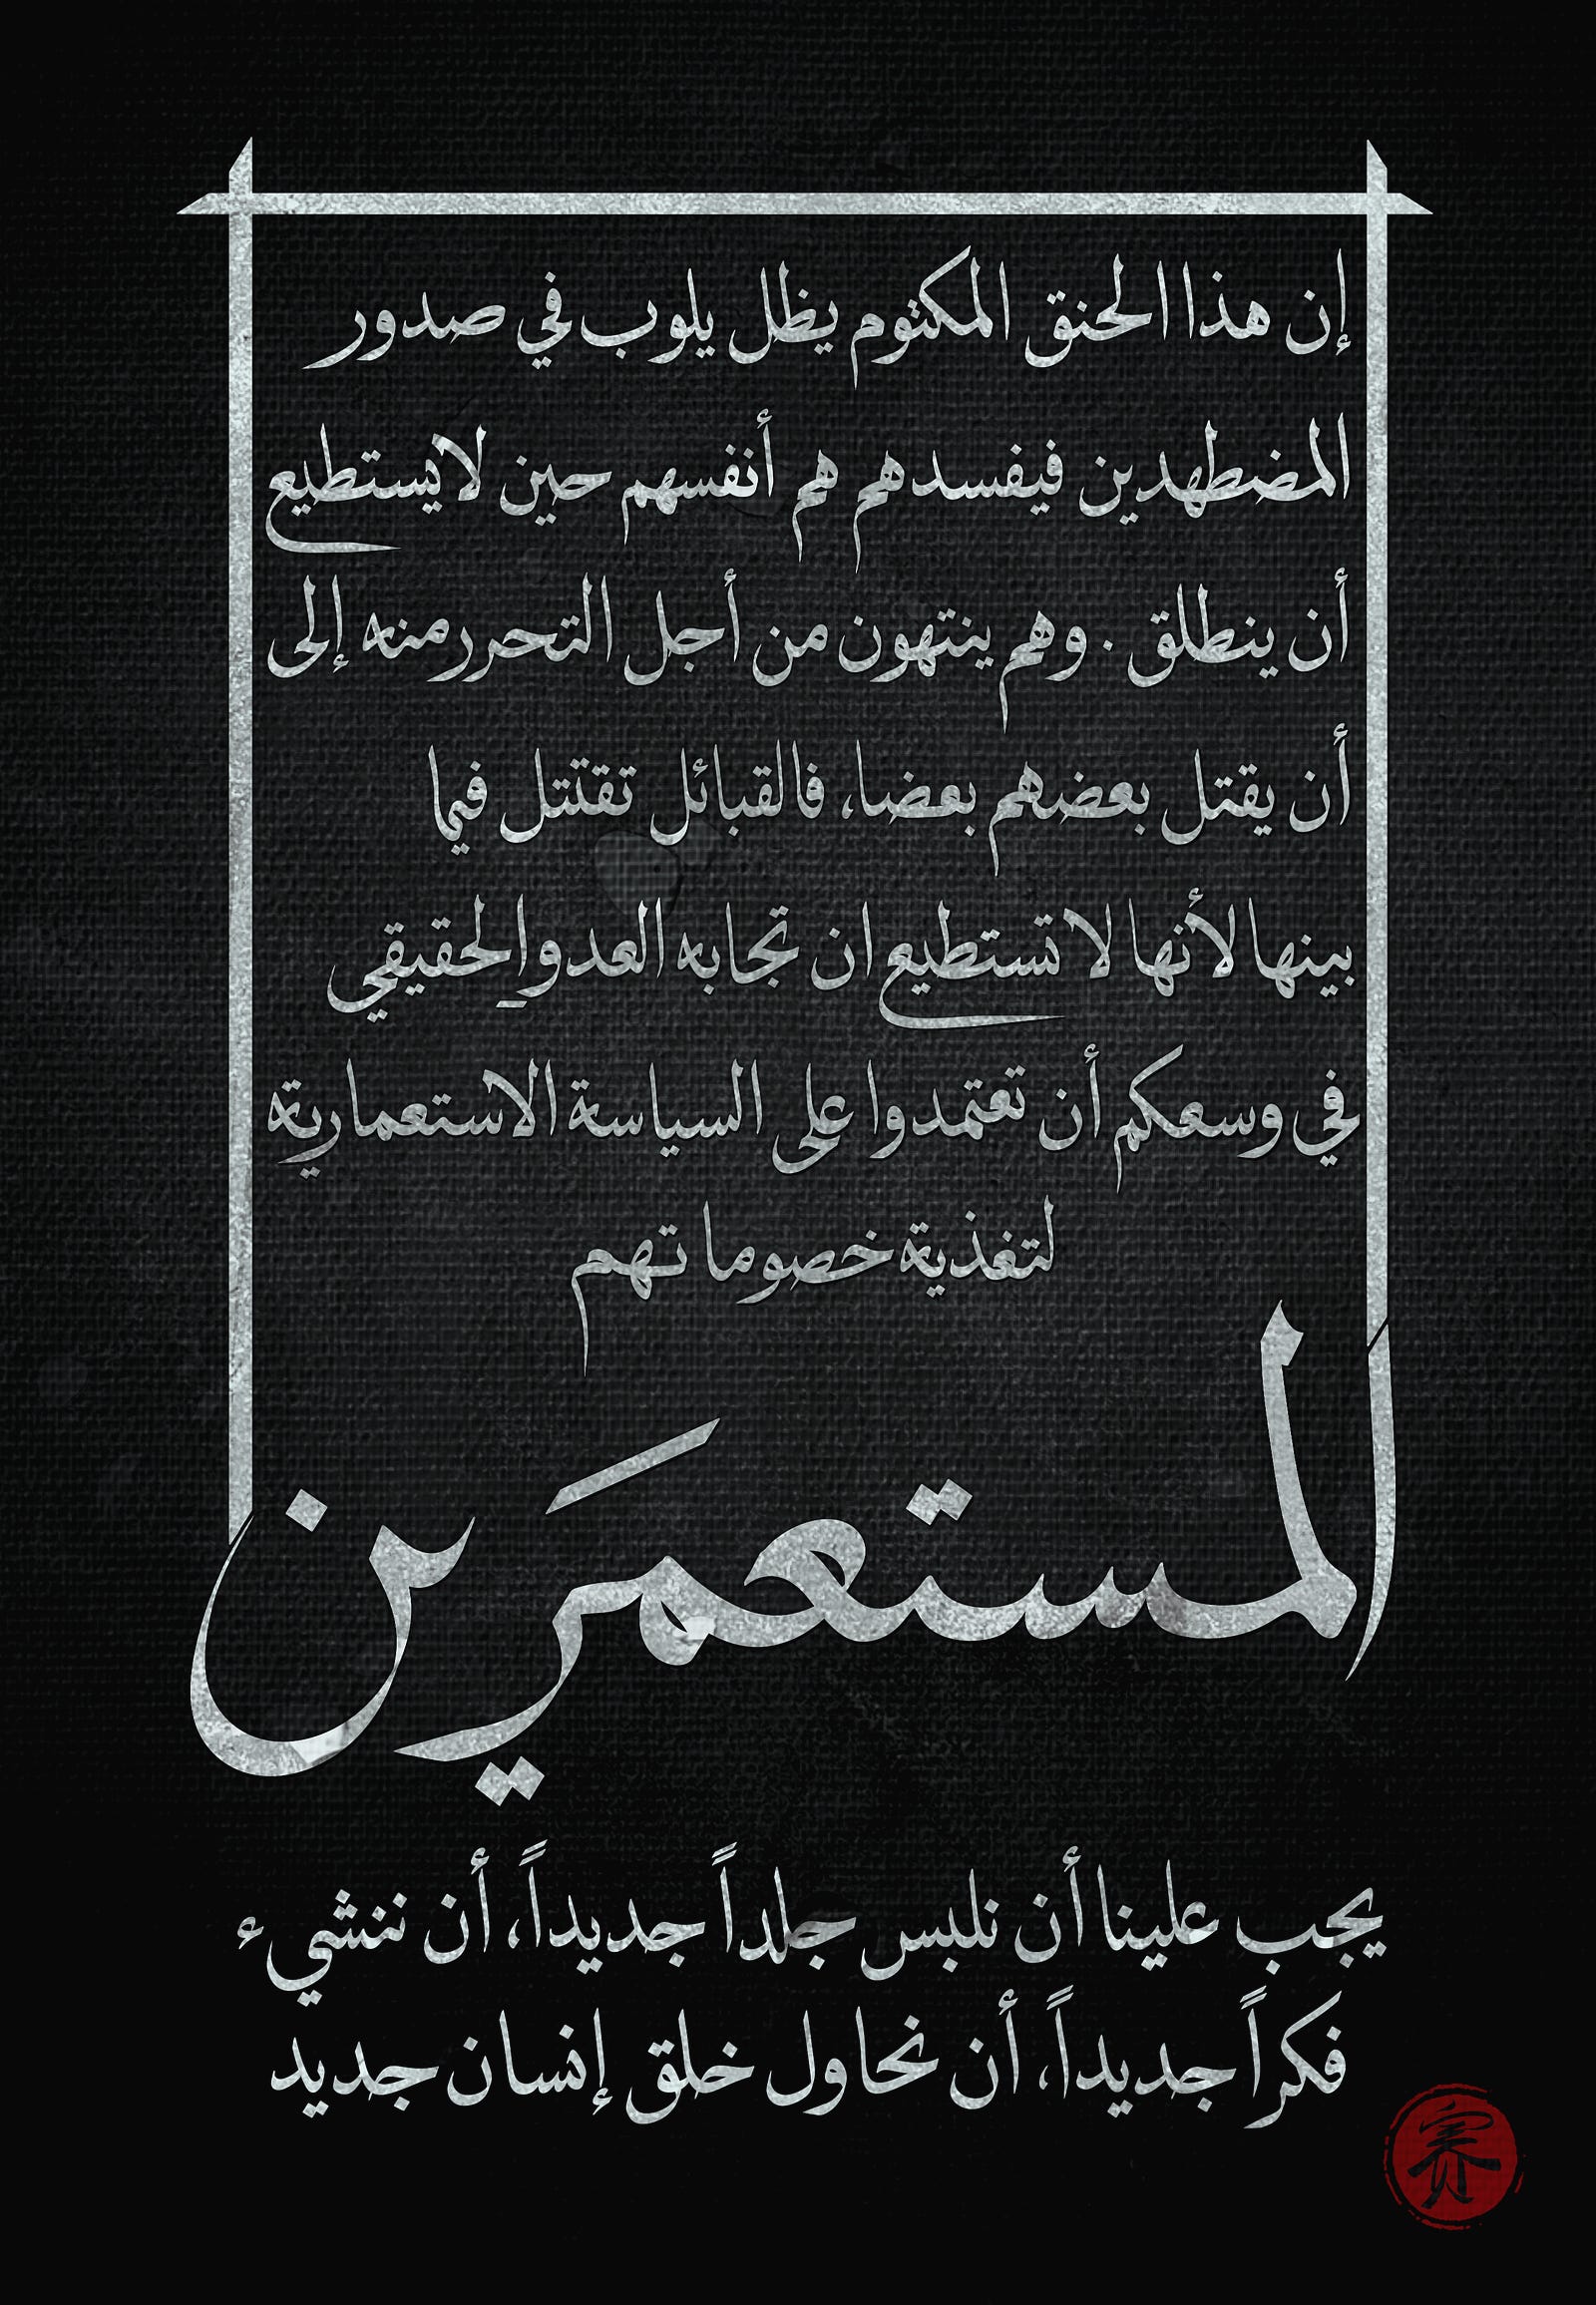 إن هذا الحنق المكتوم يظل يلوب في صدور
المضطهدين فيفسدهم هم أنفسهم حين لا يستطيع
أن ينطلق . وهم ينتهون من أجل التحرر منه إلى
أن يقتل بعضهم بعضا، فالقبائل تقتتل فيما
بينها لأنها لا تستطيع ان تجابه العدو الحقيقي
في وسعكم أن تعتمدوا على السياسة الاستعمارية
لتغذية خصوماتهم
المستعمَرين
يجب علينا أن نلبس جلداً جديداً، أن ننشيء
فكراً جديداً، أن نحاول خلق إنسان جديد